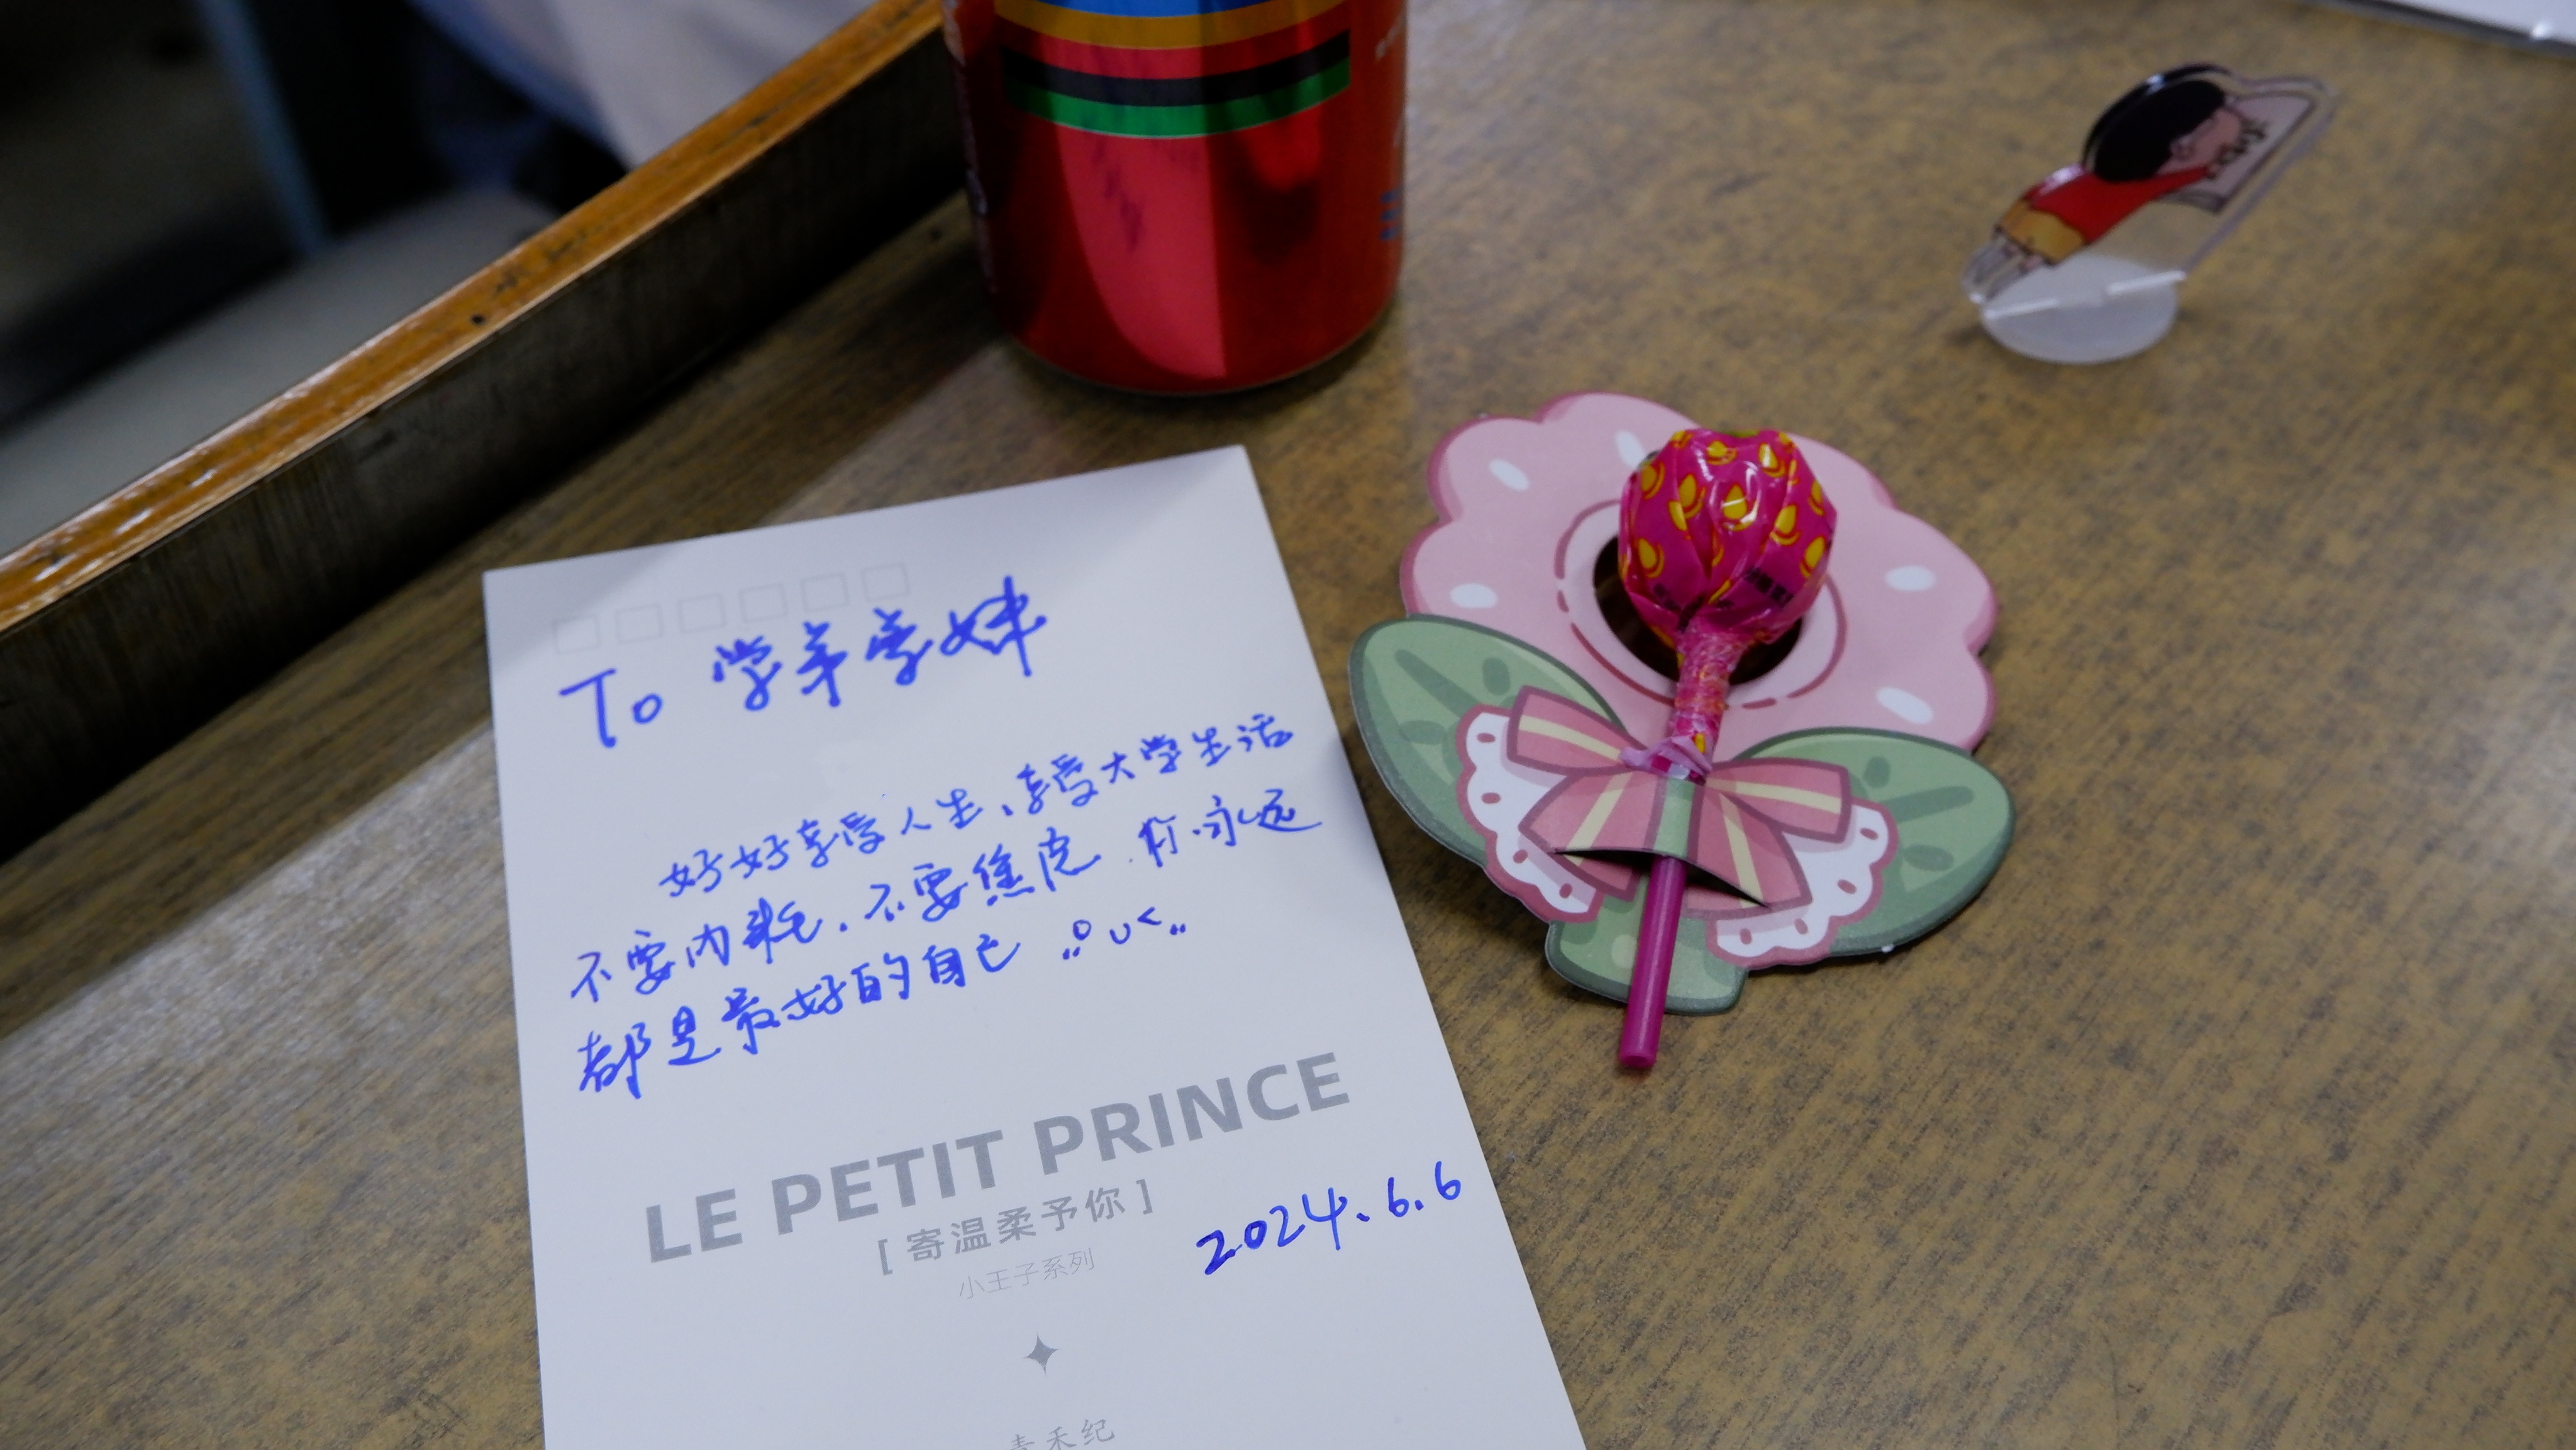 To 学弟学妹
好好享受人生，享受大学生活
不要内耗，不要焦虑，你永远
都是最好的自己
LE PETIT PRINCE
[ 寄温柔予你 ]
小王子系列
2024.6.6
青禾纪